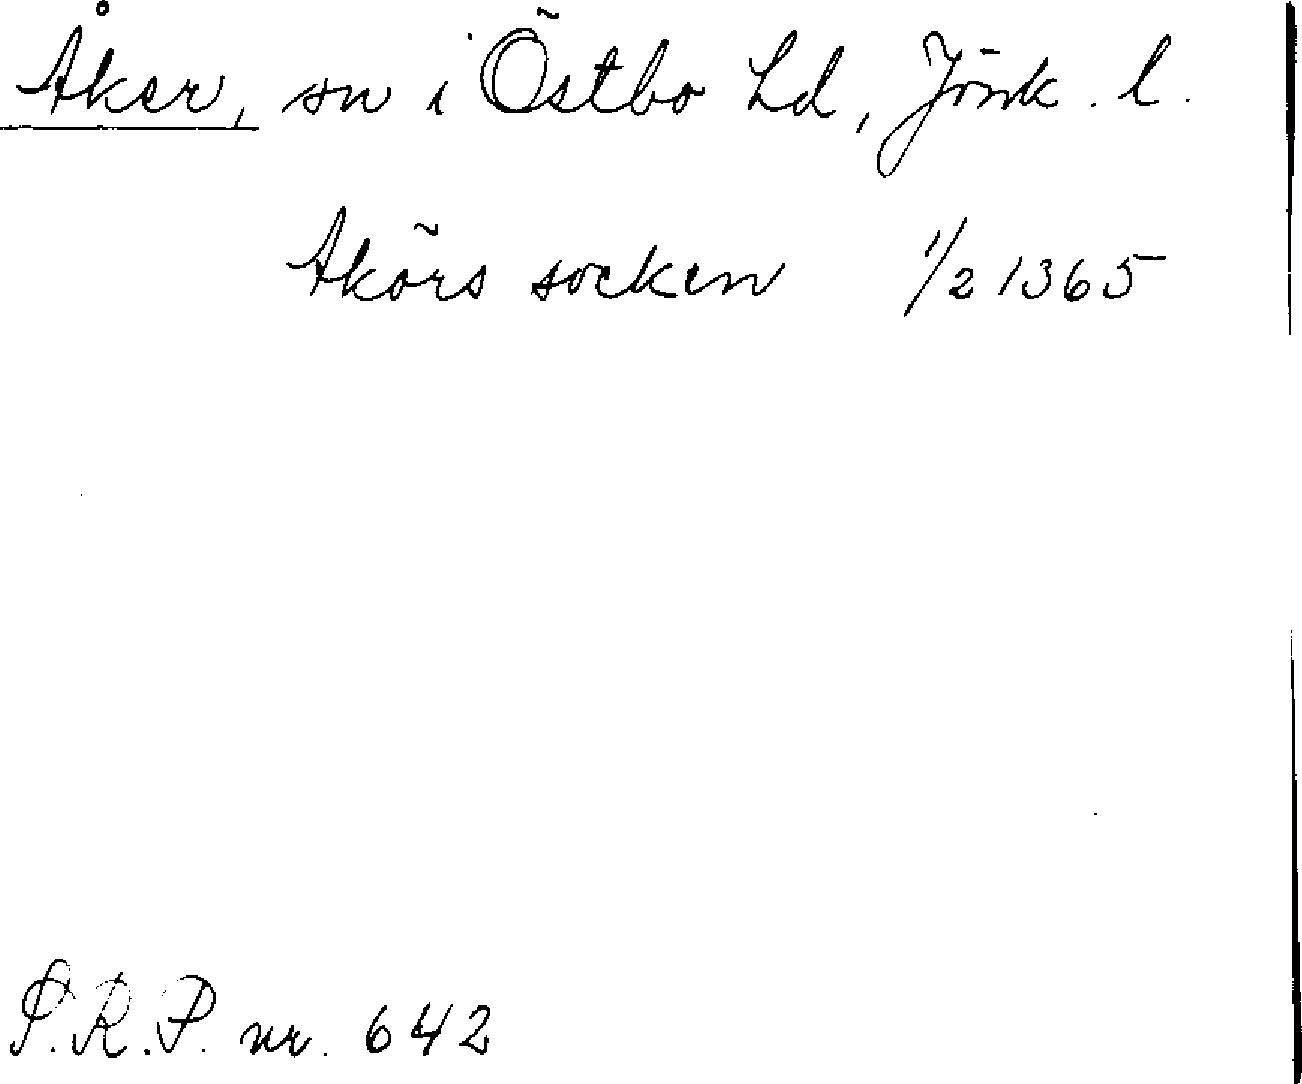 Åker, sn i Östbo hd, Jönk. l.
Akörs socken 1/2 1365
S.R.P. nr. 642